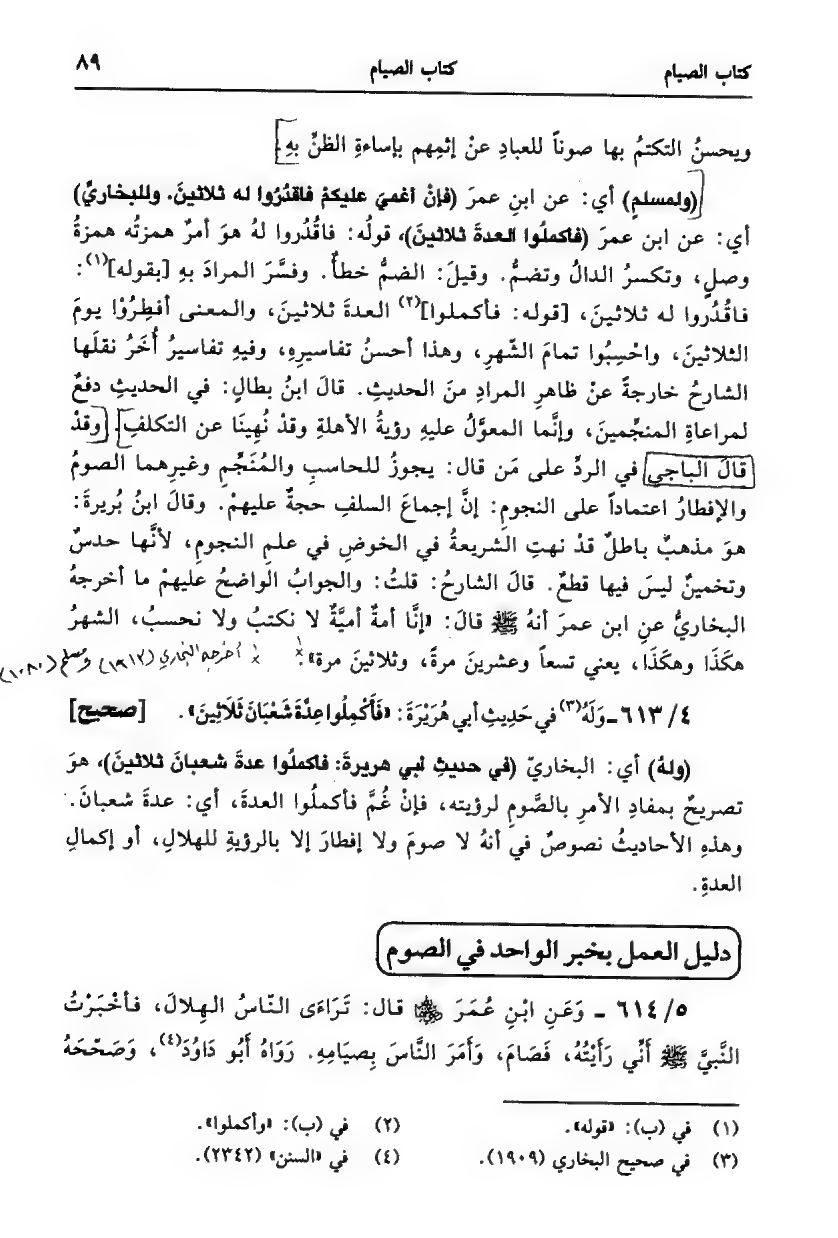 كتاب الصيام كتاب الصيام ٨٩
ويحسنُ التكتمُ بها صوناً للعبادِ عنْ إثمِهم بإساءةِ الظنِّ بهِ.
(ولمسلمٍ) أي: عن ابنِ عمرَ (فإنْ أغميَ عليكمْ فاقدُرُوا له ثلاثينَ. وللبخاريِّ)
أي: عن ابن عمرَ (فاكملُوا العدةَ ثلاثينَ)، قولُه: فاقْدُروا لهُ هوَ أمرٌ همزتُه همزةُ
وصلٍ، وتكسرُ الدالُ وتضمُّ. وقيلَ: الضمُّ خطأٌ. وفسَّرَ المرادَ بهِ [بقوله](١):
فاقْدُروا له ثلاثينَ، [قوله: فأكملوا](٢) العدةَ ثلاثينَ، والمعنى أفطِرُوْا يومَ
الثلاثينَ، واحْسِبُوا تمامَ الشّهرِ، وهذا أحسنُ تفاسيرِهِ، وفيهِ تفاسيرُ أُخَرُ نقلَها
الشارحُ خارجةً عنْ ظاهرِ المرادِ منَ الحديثِ. قالَ ابنُ بطالٍ: في الحديثِ دفعٌ
لمراعاةِ المنجِّمينَ، وإنَّما المعوَّلُ عليهِ رؤيةُ الأهلةِ وقدْ نُهِينَا عن التكلفِ. وقدْ
قالَ الباجي في الردِّ على مَن قال: يجوزُ للحاسبِ والمُنَجِّمِ وغيرِهما الصومُ
والإفطارُ اعتماداً على النجومِ: إنَّ إجماعَ السلفِ حجةٌ عليهمْ. وقالَ ابنُ بُريرةَ:
هوَ مذهبٌ باطلٌ قدْ نهتِ الشريعةُ في الخوضِ في علمِ النجومِ، لأنَّها حدسٌ
وتخمينٌ ليسَ فيها قطعٌ. قالَ الشارحُ: قلتُ: والجوابُ الواضحُ عليهمْ ما أخرجهُ
البخاريُّ عنِ ابن عمرَ أنهُ ﷺ قالَ: «إنَّا أمةٌ أميَّةٌ لا نكتبُ ولا نحسبُ، الشهرُ
هكَذَا وهكَذَا، يعني تسعاً وعشرينَ مرةً، وثلاثينَ مرة». أخرجه البخاري (١٩١٣) ومسلم (١٠٨٠)
٤/ ٦١٣ ـ وَلَهُ(٣) في حَدِيثِ أبي هُرَيْرَةَ: «فَأَكْمِلُوا عِدَّةَ شَعْبَانَ ثَلَاثِينَ». [صحيح]
(ولهُ) أي: البخاريّ (في حديثِ أبي هريرةَ: فاكملُوا عدةَ شعبانَ ثلاثينَ)، هوَ
تصريحٌ بمفادِ الأمرِ بالصَّومِ لرؤيته، فإنْ غُمَّ فأكملُوا العدةَ، أي: عدةَ شعبانَ.
وهذهِ الأحاديثُ نصوصٌ في أنهُ لا صومَ ولا إفطارَ إلا بالرؤيةِ للهلالِ، أو إكمالِ
العدةِ.
دليل العمل بخبر الواحد في الصوم
٥/ ٦١٤ ـ وَعَنِ ابْنِ عُمَرَ رضي الله عنهما قال: تَرَاءَى النّاسُ الهِلالَ، فأخْبَرْتُ
النَّبيَّ ﷺ أَنِّي رَأَيْتُهُ، فَصَامَ، وَأَمَرَ النَّاسَ بِصِيَامِهِ. رَوَاهُ أَبُو دَاوُدَ(٤)، وَصَحّحَهُ
(١) في (ب): «قوله». (٢) في (ب): «وأكملوا».
(٣) في صحيح البخاري (١٩٠٩). (٤) في «السنن» (٢٣٤٢).